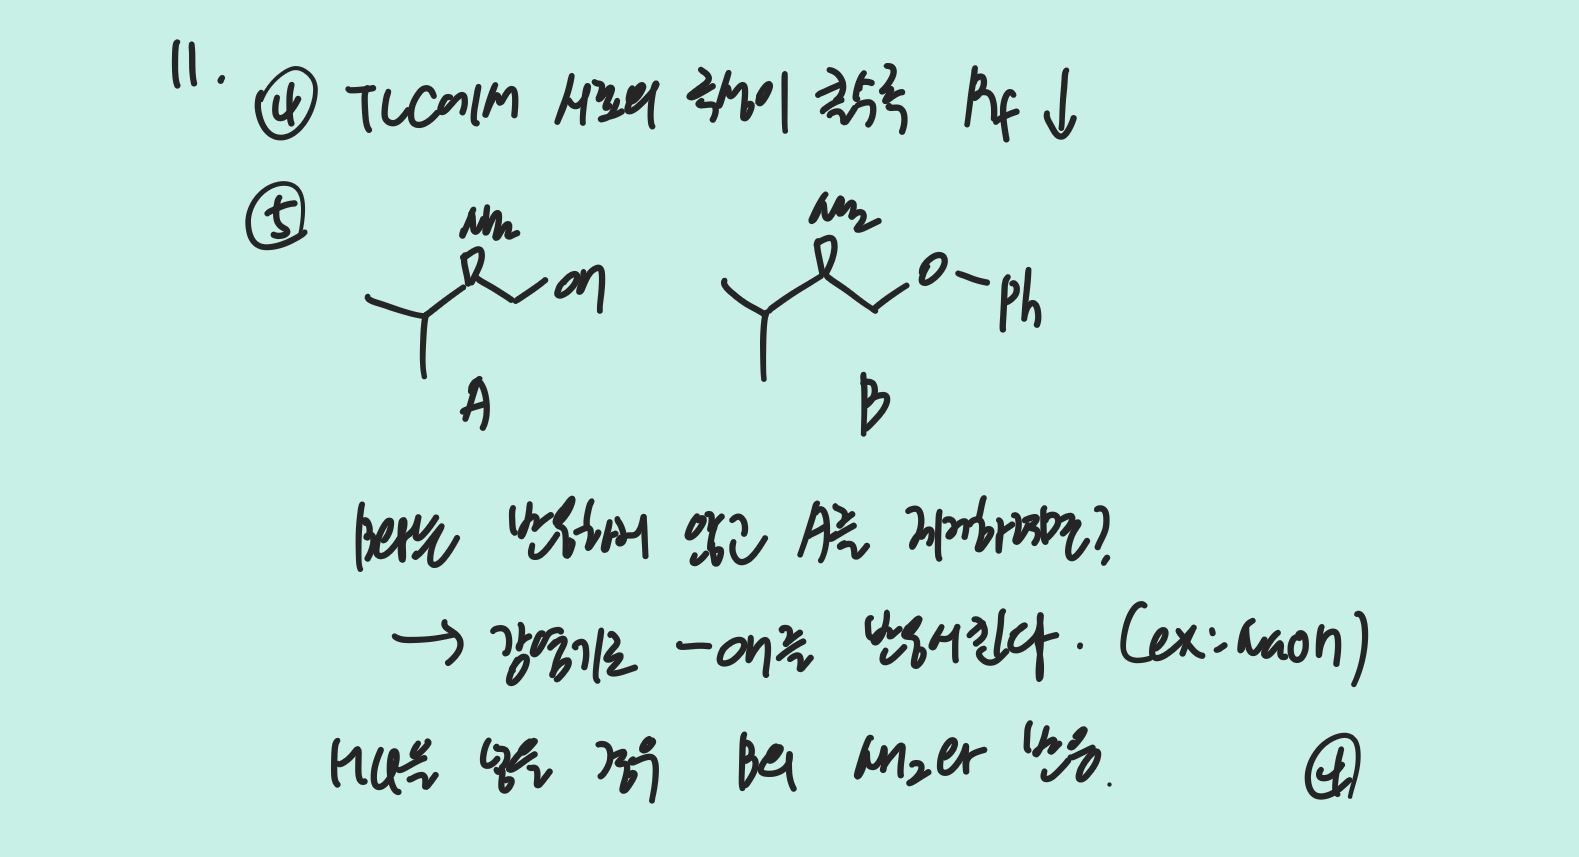 11.
④ TLC에서 시료의 극성이 클수록 Rf ↓
⑤
NH2 NH2
OH O-Ph
A B
B와는 반응하지 않고 A를 제거하려면?
→ 강염기로 -OH를 반응시킨다. (ex: NaOH)
HCl을 넣을 경우 B의 NH2와 반응. ④